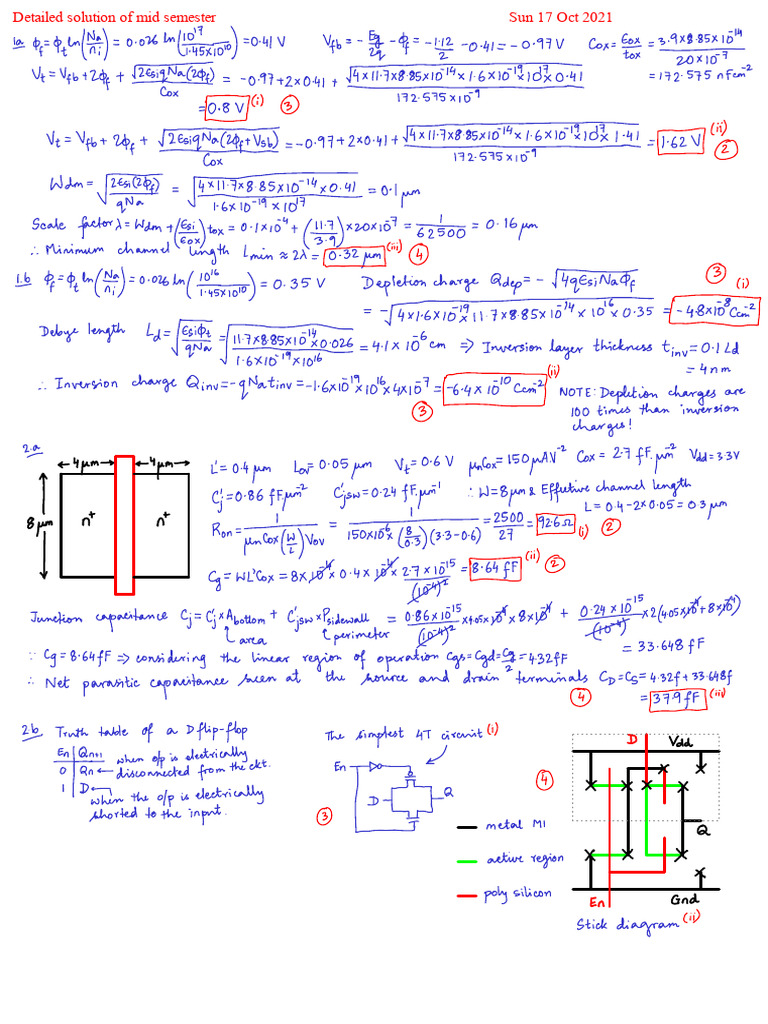 Detailed solution of mid semester Sun 17 Oct 2021
1a ϕf = ϕt ln(Na/ni) = 0.026 ln(10^17/1.45×10^10) = 0.41 V Vfb = -Eg/2q - ϕf = -1.12/2 - 0.41 = -0.97V Cox = εox/tox = 3.9×8.85×10^-14/20×10^-7
= 172.575 nFcm^-2
Vt = Vfb + 2ϕf + √(2εsiqNa(2ϕf))/Cox = -0.97 + 2×0.41 + √(4×11.7×8.85×10^-14×1.6×10^-19×10^17×0.41)/172.575×10^-9
= 0.8 V (i) ③
Vt = Vfb + 2ϕf + √(2εsiqNa(2ϕf+Vsb))/Cox = -0.97 + 2×0.41 + √(4×11.7×8.85×10^-14×1.6×10^-19×10^17×1.41)/172.575×10^-9 = 1.62 V (ii) ②
Wdm = √(2εsi(2ϕf)/qNa) = √(4×11.7×8.85×10^-14×0.41/1.6×10^-19×10^17) = 0.1 μm
Scale factor λ = Wdm + (εsi/εox)tox = 0.1×10^-4 + (11.7/3.9)×20×10^-7 = 1/62500 = 0.16 μm
∴ Minimum channel length Lmin ≈ 2λ = 0.32 μm (iii) ④
1.b ϕf = ϕt ln(Na/ni) = 0.026 ln(10^16/1.45×10^10) = 0.35 V Depletion charge Qdep = -√(4qεsiNaϕf) ③
= -√(4×1.6×10^-19×11.7×8.85×10^-14×10^16×0.35) = -4.8×10^-8 Ccm^-2 (i)
Debye length Ld = √(εsiϕt/qNa) = √(11.7×8.85×10^-14×0.026/1.6×10^-19×10^16) = 4.1×10^-6 cm ⇒ Inversion layer thickness tinv = 0.1 Ld
= 4 nm
∴ Inversion charge Qinv = -qNatinv = -1.6×10^-19×10^16×4×10^-7 = -6.4×10^-10 Ccm^-2 (ii) ③
NOTE: Depletion charges are
100 times than inversion
charges!
2.a
4 μm 4 μm
8 μm n+ n+
L' = 0.4 μm Lov = 0.05 μm Vt = 0.6 V μnCox = 150 μAV^-2 Cox = 2.7 fF.μm^-2 Vdd = 3.3V
C'j = 0.86 fFμm^-2 C'jsw = 0.24 fF.μm^-1 ∴ W = 8μm & Effective channel length
L = 0.4 - 2×0.05 = 0.3 μm
Ron = 1/μnCox(W/L)Vov = 1/150×10^6×(8/0.3)(3.3-0.6) = 2500/27 = 92.6Ω (i) ②
Cg = WL'Cox = 8×10^-4×0.4×10^-4×2.7×10^-15/(10^-4)^2 = 8.64 fF (ii) ②
Junction capacitance Cj = C'j×Abottom + C'jsw×Psidewall = 0.86×10^-15/(10^-4)^2×4.05×10^-4×8×10^-4 + 0.24×10^-15/(10^-4)×2(4.05×10^-4+8×10^-4)
area perimeter
= 33.648 fF
∵ Cg = 8.64fF ⇒ considering the linear region of operation Cgs = Cgd = Cg/2 = 4.32fF
∴ Net parasitic capacitance seen at the source and drain terminals CD = CS = 4.32f + 33.648f
④ = 37.9 fF (iii)
2b Truth table of a D flip-flop
En Qn+1
0 Qn ← when o/p is electrically disconnected from the ckt.
1 D ← when the o/p is electrically shorted to the input.
The simplest 4T circuit (i)
En
D Q
③
④
D Vdd
Q
En Gnd
metal M1
active region
poly silicon
Stick diagram (ii)